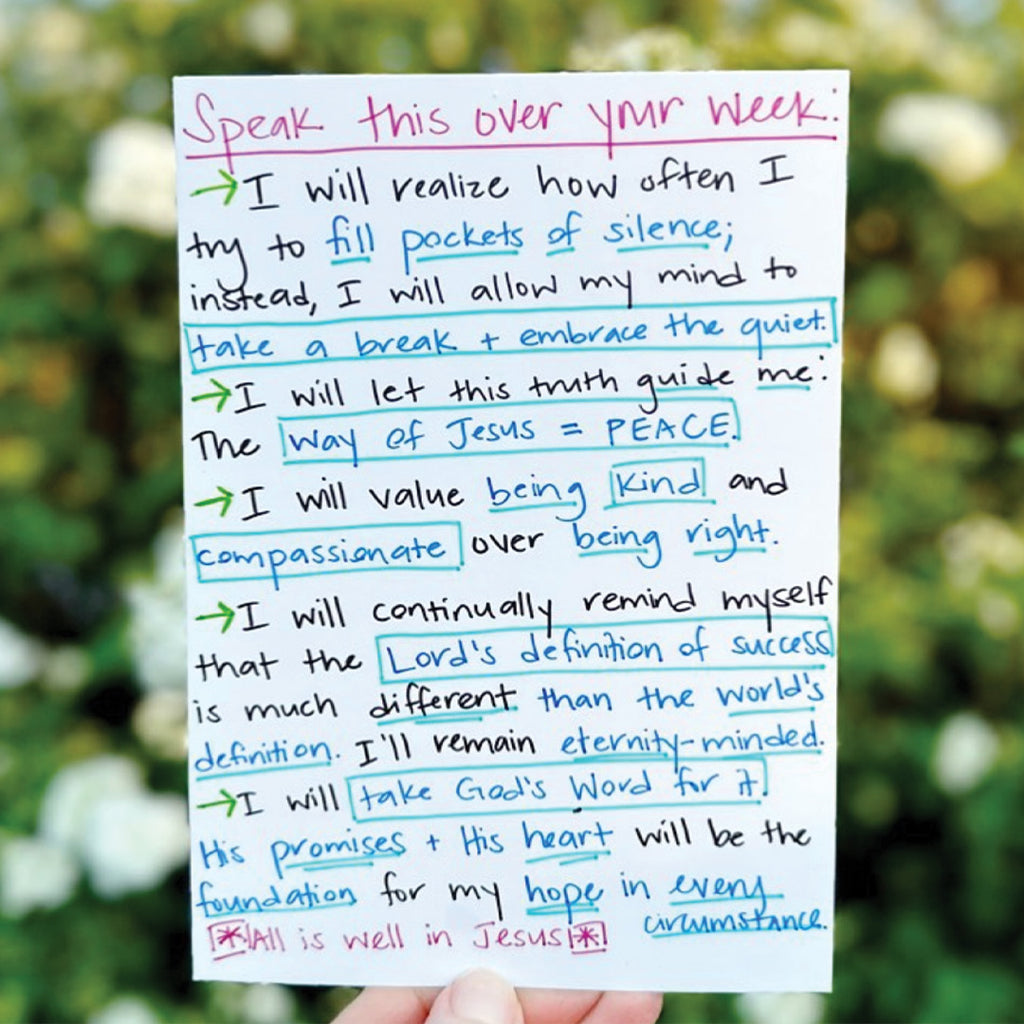 Speak this over your week:
→I will realize how often I
try to fill pockets of silence;
instead, I will allow my mind to
take a break + embrace the quiet.
→I will let this truth guide me:
The Way of Jesus = PEACE.
→I will value being kind and
compassionate over being right.
→I will continually remind myself
that the Lord's definition of success
is much different than the world's
definition. I'll remain eternity-minded.
→I will take God's Word for it.
His promises + His heart will be the
foundation for my hope in every
circumstance.
*All is well in Jesus*